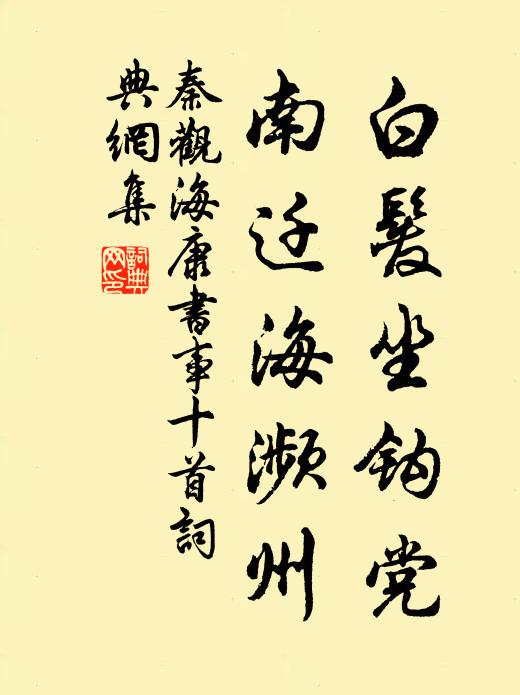 白髮坐鈎党
南迁海瀕州
秦觀海康書事十首詞
典網集
詞典
网印